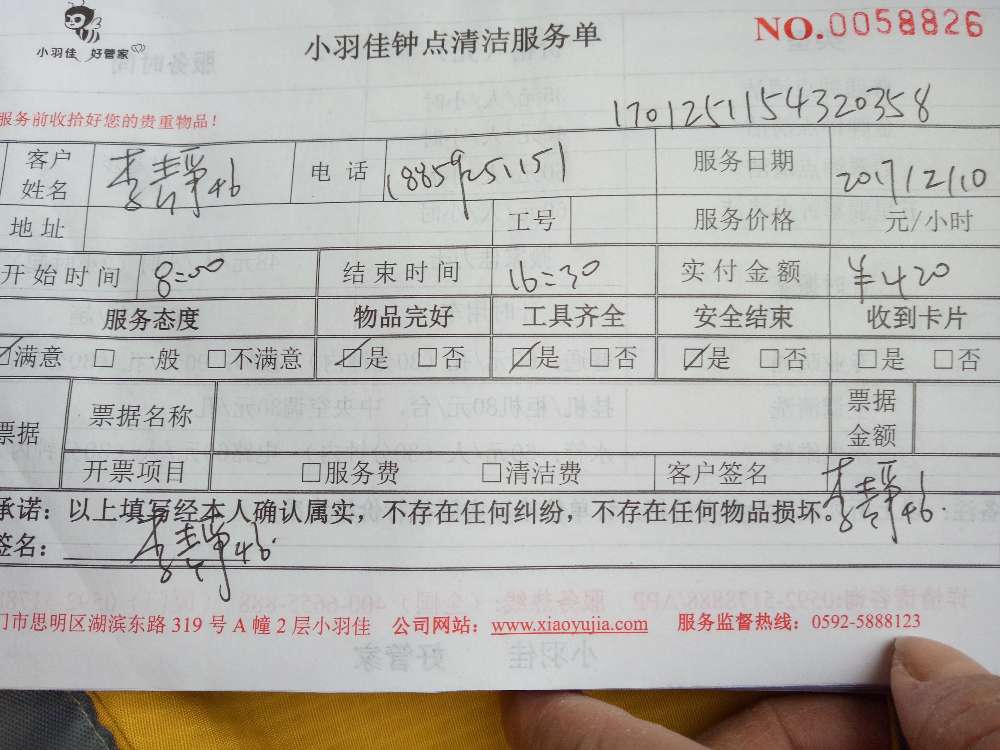 小羽佳 好管家
小羽佳钟点清洁服务单
NO.0058826
服务前收拾好您的贵重物品!
1701251154320358
客户姓名 电话 18859251151 服务日期 2017/12/10
地址 工号 服务价格 元/小时
开始时间 8:00 结束时间 16:30 实付金额 ¥420
服务态度 物品完好 工具齐全 安全结束 收到卡片
☑满意 □一般 □不满意 ☑是 □否 ☑是 □否 ☑是 □否 □是 □否
票据 票据名称 票据金额
开票项目 □服务费 □清洁费 客户签名
承诺：以上填写经本人确认属实，不存在任何纠纷，不存在任何物品损坏。
签名：
门市思明区湖滨东路 319 号 A 幢 2 层小羽佳 公司网站：www.xiaoyujia.com 服务监督热线：0592-5888123